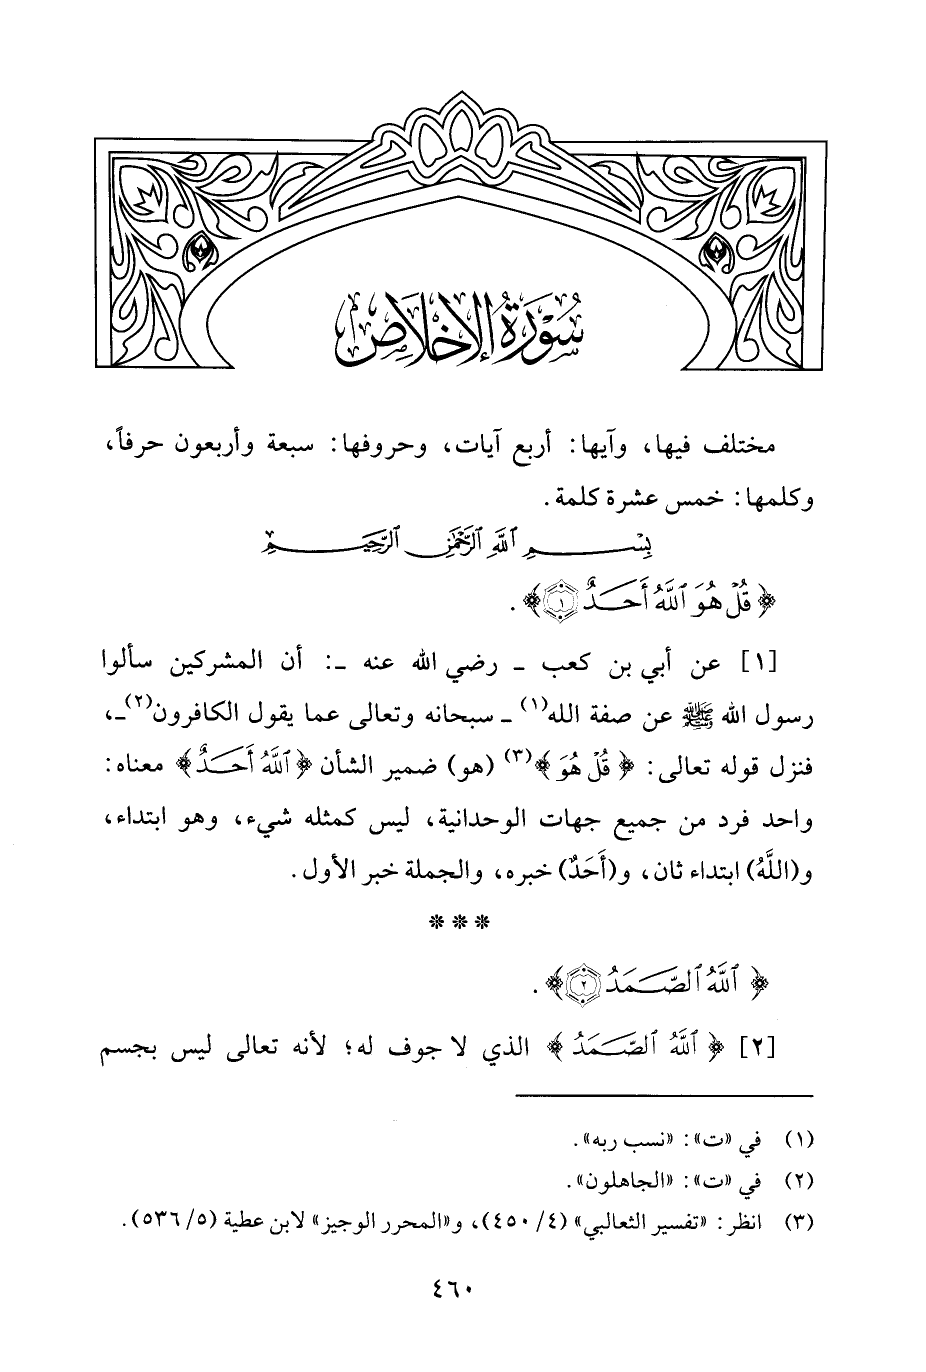 سُورَةُ الإِخْلَاصِ
مختلف فيها، وآيها: أربع آيات، وحروفها: سبعة وأربعون حرفاً،
وكلمها: خمس عشرة كلمة.
بِسْمِ اللَّهِ الرَّحْمَٰنِ الرَّحِيمِ
﴿ قُلْ هُوَ ٱللَّهُ أَحَدٌ ۝١﴾.
[١] عن أبي بن كعب ـ رضي الله عنه ـ: أن المشركين سألوا
رسول الله ﷺ عن صفة الله(١) ـ سبحانه وتعالى عما يقول الكافرون(٢)ـ،
فنزل قوله تعالى: ﴿ قُلْ هُوَ ﴾(٣) (هو) ضمير الشأن ﴿ ٱللَّهُ أَحَدٌ ﴾ معناه:
واحد فرد من جميع جهات الوحدانية، ليس كمثله شيء، وهو ابتداء،
و(اللَّهُ) ابتداء ثان، و(أَحَدٌ) خبره، والجملة خبر الأول.
* * *
﴿ ٱللَّهُ ٱلصَّمَدُ ۝٢﴾.
[٢] ﴿ ٱللَّهُ ٱلصَّمَدُ ﴾ الذي لا جوف له؛ لأنه تعالى ليس بجسم
(١) في «ت»: «نسب ربه».
(٢) في «ت»: «الجاهلون».
(٣) انظر: «تفسير الثعالبي» (٤/ ٤٥٠)، و«المحرر الوجيز» لابن عطية (٥/ ٥٣٦).
٤٦٠